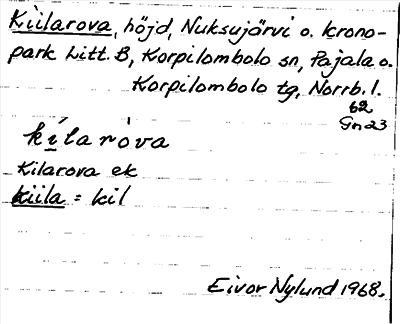 Kiilarova, höjd, Nuksujärvi o. krono-
park Litt. B, Korpilombolo sn, Pajala o.
Korpilombolo tg, Norrb. l.
62
Gn 23
kílaròva
Kilarova ek
Kiila = kil
Eivor Nylund 1968.